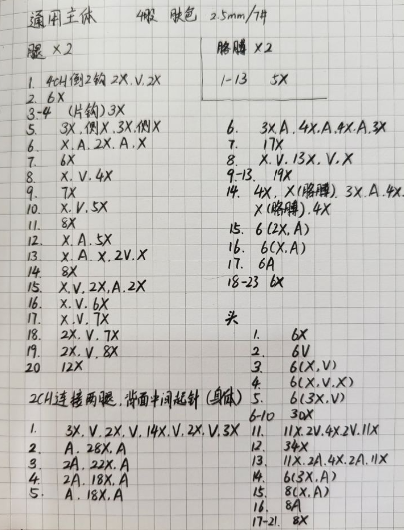 通用主体 4股 肤色 2.5mm/7#
腿 ×2
1. 4CH倒2钩 2X.V.2X
2. 6X
3-4 (片钩)3X
5. 3X.侧X.3X.侧X
6. X.A.2X.A.X
7. 6X
8. X.V.4X
9. 7X
10. X.V.5X
11. 8X
12. X.A.5X
13. X.A.X.2V.X
14. 8X
15. X.V.2X.A.2X
16. X.V.6X
17. X.V.7X
18. 2X.V.7X
19. 2X.V.8X
20 12X
2CH连接两腿.背面中间起针(身体)
1. 3X.V.2X.V.14X.V.2X.V.3X
2. A.28X.A
3. 2A.22X.A
4. 2A.18X.A
5. A.18X.A
胳膊 ×2
1-13 5X
6. 3X.A.4X.A.4X.A.3X
7. 17X
8. X.V.13X.V.X
9-13. 19X
14. 4X.X(胳膊).3X.A.4X.
X(胳膊).4X
15. 6(2X.A)
16. 6(X.A)
17. 6A
18-23 6X
头
1. 6X
2. 6V
3. 6(X.V)
4. 6(X.V.X)
5. 6(3X.V)
6-10 30X
11. 11X.2V.4X.2V.11X
12. 34X
13. 11X.2A.4X.2A.11X
14. 6(3X.A)
15. 8(X.A)
16. 8A
17-21. 8X